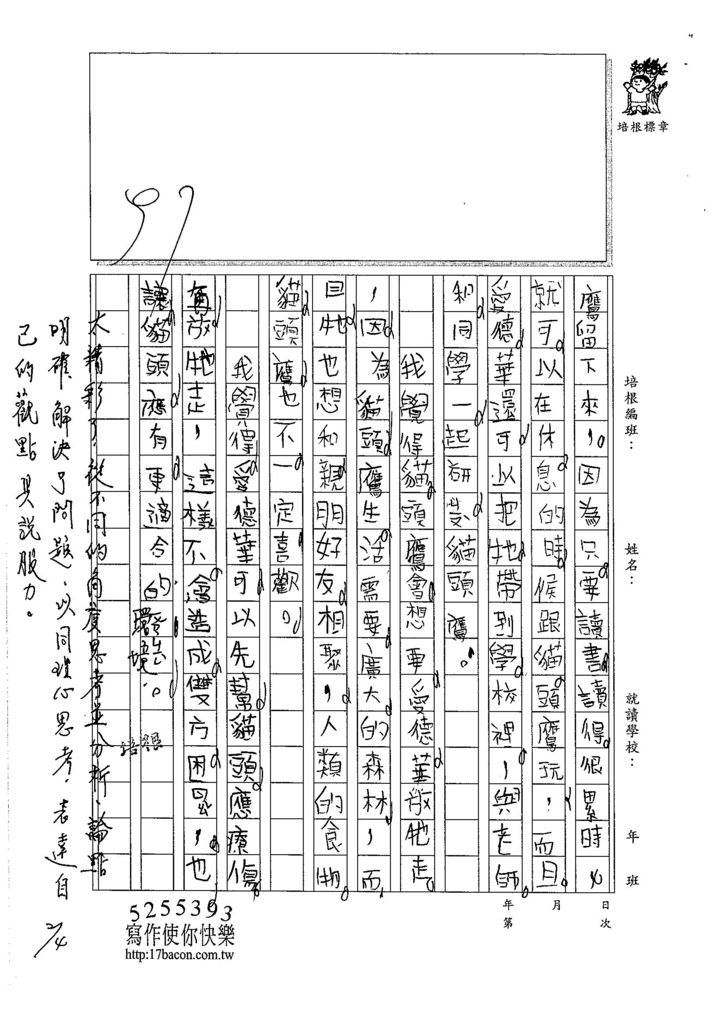 培根標章
培根編班：
姓名：
就讀學校：
年 班
日次
月
年第
97
鷹留下來，因為只要讀書讀得很累時，
就可以在休息的時候跟貓頭鷹玩，而且
愛德華還可以把牠帶到學校裡，與老師
和同學一起研究貓頭鷹。
我覺得貓頭鷹會想要愛德華放牠走
，因為貓頭鷹生活需要廣大的森林，而
且牠也想和親朋好友相聚，人類的食物
貓頭鷹也不一定喜歡。
我覺得愛德華可以先幫貓頭應療傷
再放牠走，這樣不會造成雙方困擾，也
讓貓頭應有更適合的環境。
培根
太精彩了從不同的角度思考並分析，論點
明確解決了問題，以同理心思考，表達自
己的觀點具說服力。
2/4
5255393
寫作使你快樂
http:17bacon.com.tw